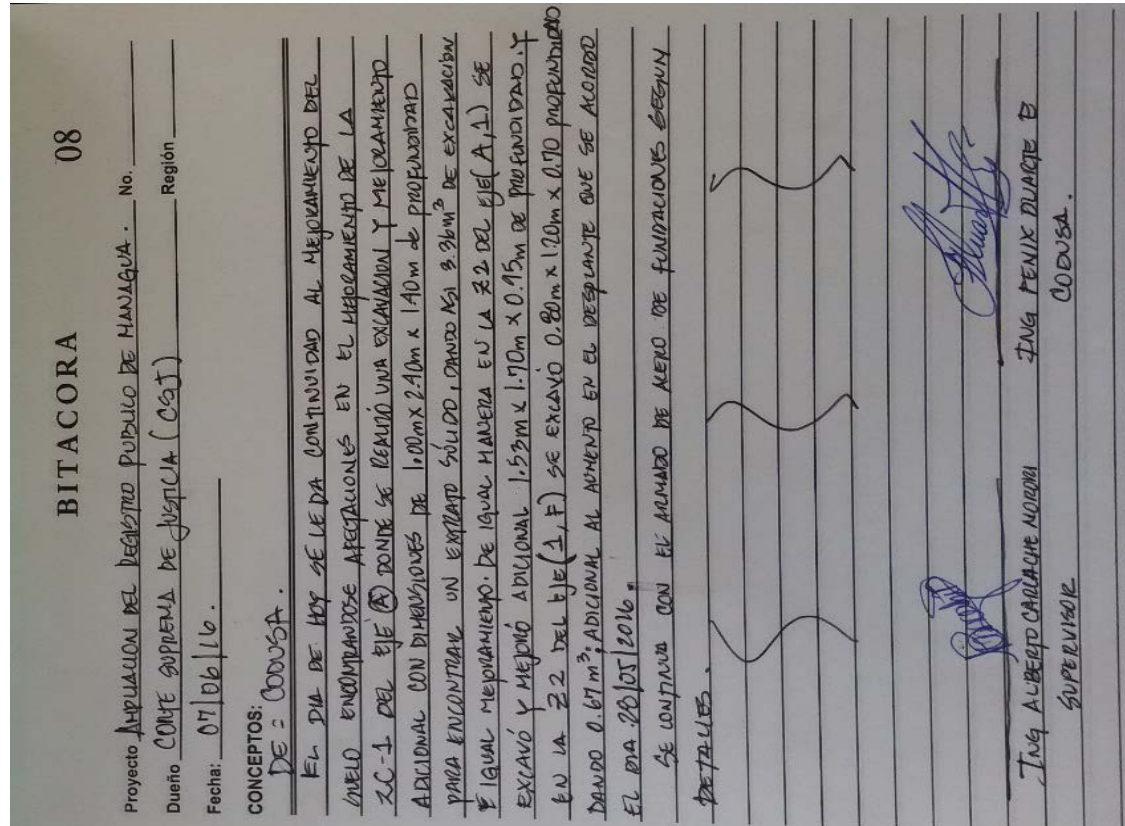 BITACORA 08
Proyecto AMPLIACION DEL REGISTRO PUBLICO DE MANAGUA. No.
Dueño CORTE SUPREMA DE JUSTICIA (CSJ) Región
Fecha: 07/06/16.
CONCEPTOS:
DE = CODUSA.
EL DIA DE HOY SE LE DA CONTINUIDAD AL MEJORAMIENTO DEL
SUELO ENCONTRANDOSE AFECTACIONES EN EL MEJORAMIENTO DE LA
ZC-1 DEL EJE (A) DONDE SE REALIZÓ UNA EXCAVACION Y MEJORAMIENTO
ADICIONAL CON DIMENSIONES DE 1.00m x 2.40m x 1.40m de PROFUNDIDAD
PARA ENCONTRAR UN EXTRATO SÓLIDO, DANDO ASI 3.36m³ DE EXCAVACION
E IGUAL MEJORAMIENTO. DE IGUAL MANERA EN LA Z2 DEL EJE (A,1) SE
EXCAVÓ Y MEJORÓ ADICIONAL 1.53m x 1.70m x 0.95m DE PROFUNDIDAD. Y
EN LA Z2 DEL EJE (1,F) SE EXCAVÓ 0.80m x 1.20m x 0.70 PROFUNDIDAD
DANDO 0.67m³; ADICIONAL AL AUMENTO EN EL DESPLANTE QUE SE ACORDO
EL DIA 28/05/2016.
SE CONTINUA CON EL ARMADO DE ACERO DE FUNDACIONES SEGUN
DETALLES.
ING ALBERTO CARCACHE ING FENIX DUARTE
SUPERVISOR CODUSA.